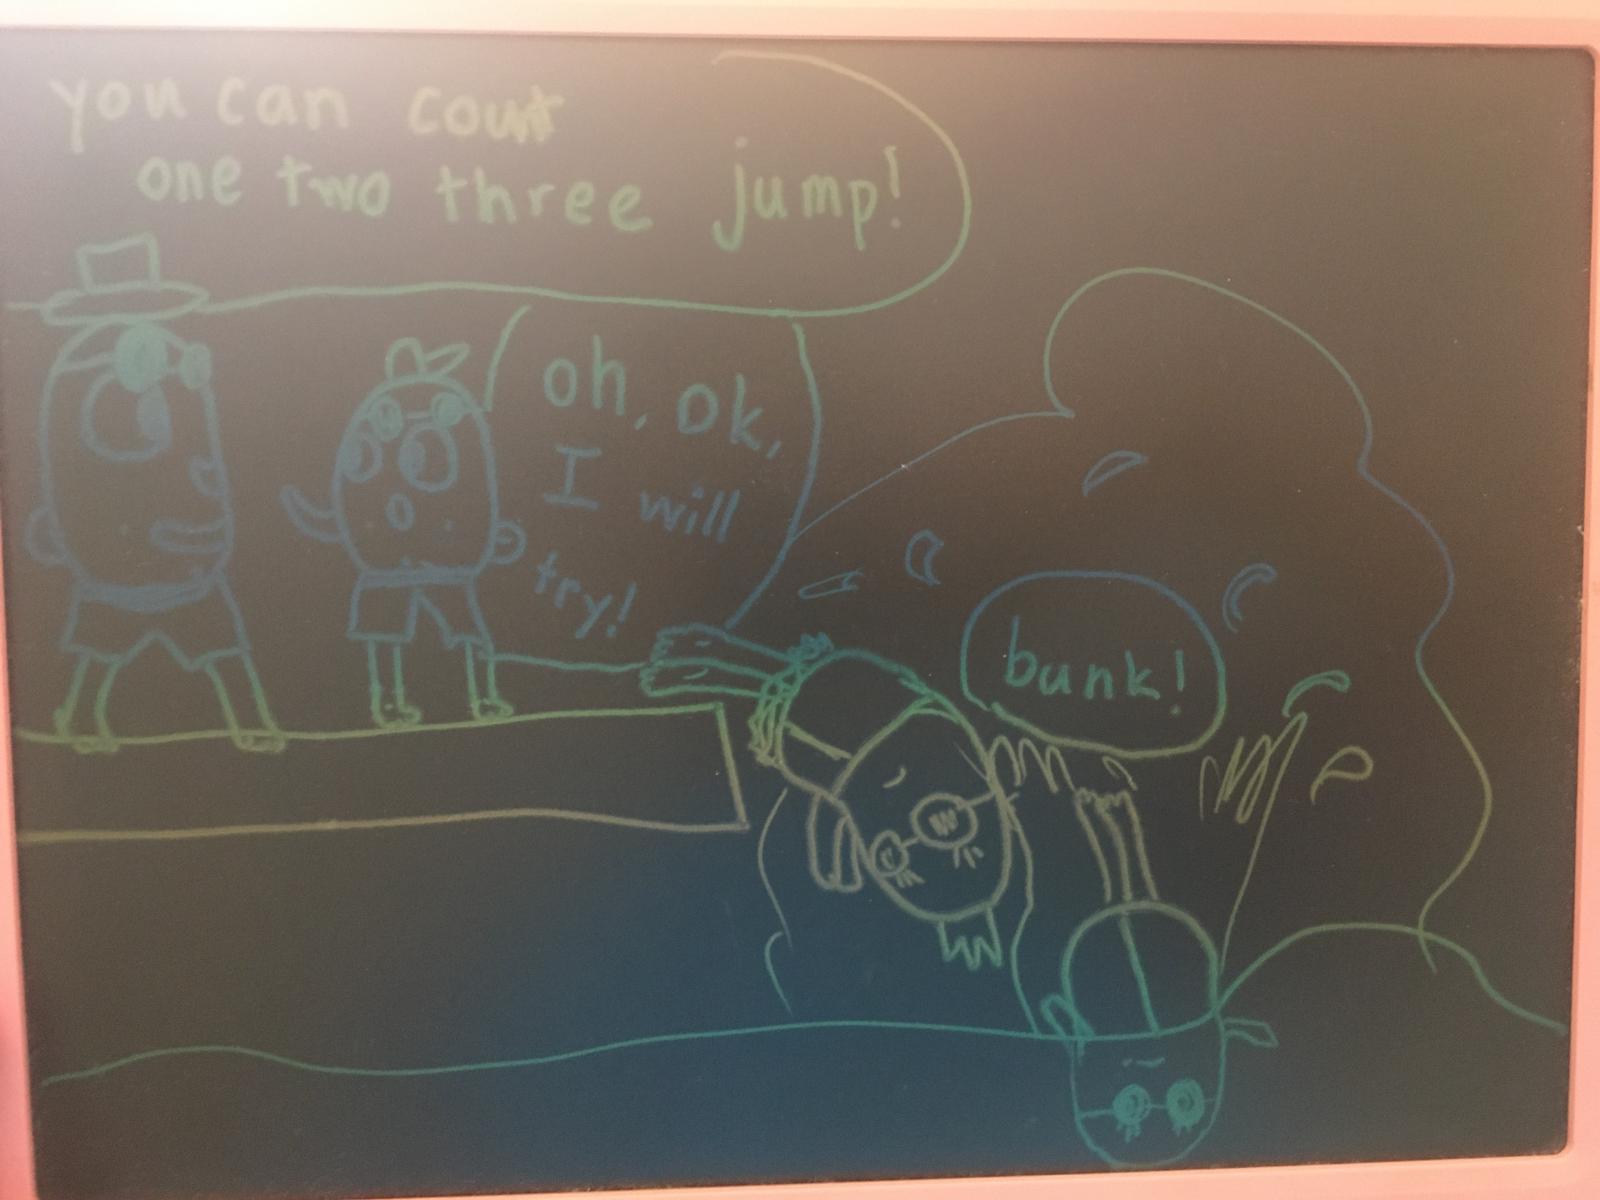 you can count
one two three jump!
oh, ok,
I will
try!
bunk!